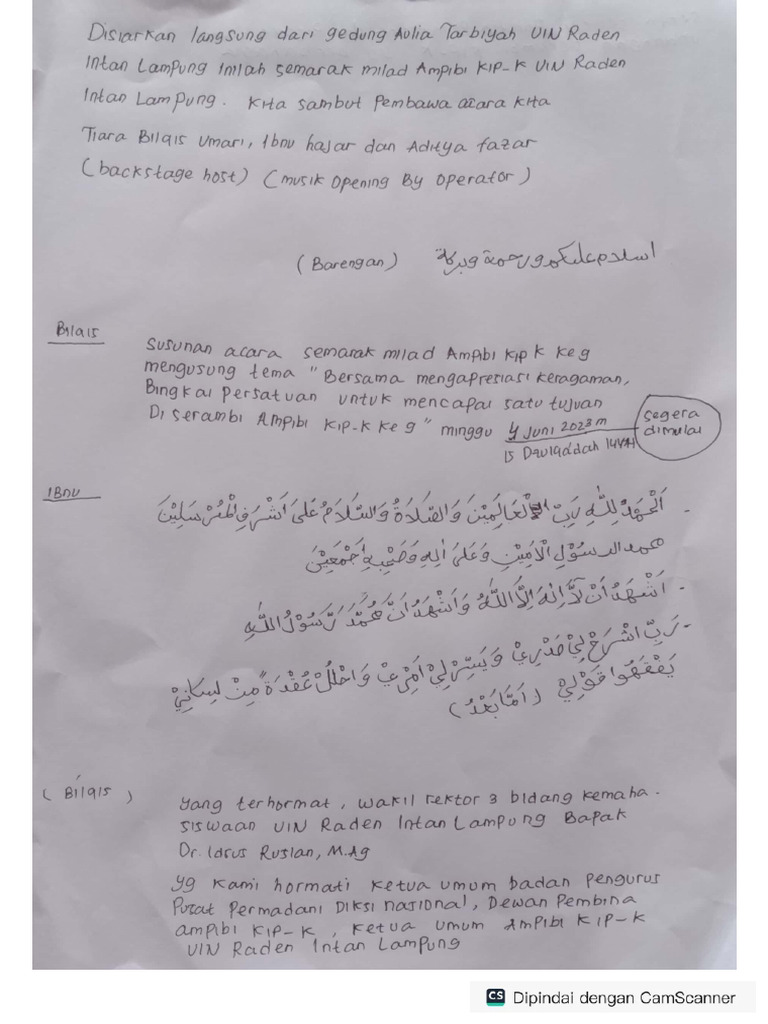 Disiarkan langsung dari gedung Aulia Tarbiyah UIN Raden
Intan Lampung inilah semarak milad Ampibi KIP-K UIN Raden
Intan Lampung. Kita sambut Pembawa acara Kita
Tiara Bilqis Umari, Ibnu hajar dan Aditya fazar
(backstage host) (musik Opening By Operator)
(Barengan) اسلام عليكم ورحمة وبركة
Bilqis
Susunan acara semarak milad Ampibi KIP K Ke 9
mengusung tema "Bersama mengapresiasi Keragaman,
Bingkai Persatuan untuk mencapai satu tujuan
Di Serambi Ampibi KIP-K Ke 9" minggu 4 Juni 2023 m
segera
dimulai
15 Dzulqaddah 1444H
IBNU
- اَلْحَمْدُ لِلّٰهِ رَبِّ الْعَالَمِيْنَ وَالصَّلَاةُ وَالسَّلَامُ عَلَى اَشْرَفِ الْمُرْسَلِيْنَ
محمد الرسُوْلِ الْاَمِيْنِ وَعَلَى اٰلِهِ وَصَحْبِهِ اَجْمَعِيْنَ
- اَشْهَدُ اَنْ لَآ اِلٰهَ اِلَّا اللّٰهُ وَاَشْهَدُ اَنَّ مُحَمَّدًا رَّسُوْلُ اللّٰهِ
- رَبِّ اشْرَحْ لِيْ صَدْرِيْ وَيَسِّرْ لِيْ اَمْرِيْ وَاحْلُلْ عُقْدَةً مِنْ لِسَانِيْ
يَفْقَهُوا قَوْلِيْ (اَمَّا بَعْدُ)
(Bilqis)
Yang terhormat, wakil rektor 3 bidang kemaha-
siswaan UIN Raden Intan Lampung Bapak
Dr. Idrus Ruslan, M.Ag
Yg Kami hormati Ketua umum badan pengurus
Pusat Permadani Diksi nasional, Dewan Pembina
ampibi KIP-K, Ketua Umum Ampibi KIP-K
UIN Raden Intan Lampung
CS Dipindai dengan CamScanner